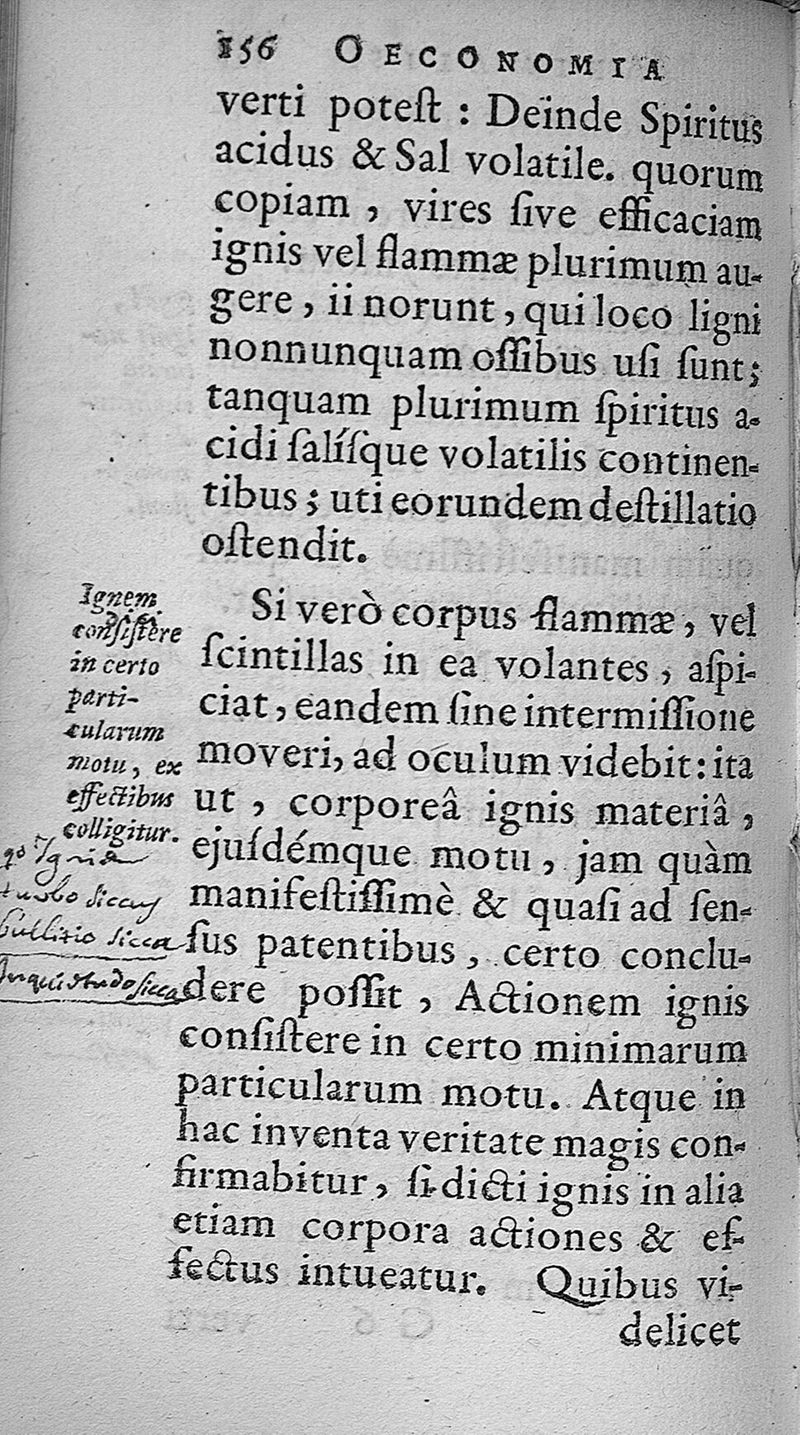 156 OECONOMIA
verti poteſt : Deinde Spiritus
acidus & Sal volatile. quorum
copiam , vires ſive efficaciam
ignis vel flammæ plurimum au-
gere , ii norunt , qui loco ligni
nonnunquam oſſibus uſi ſunt ;
tanquam plurimum ſpiritus a-
cidi ſalíſque volatilis continen-
tibus ; uti eorundem deſtillatio
oſtendit.
Si verò corpus flammæ , vel
ſcintillas in ea volantes , aſpi-
ciat , eandem ſine intermiſſione
moveri, ad oculum videbit : ita
ut , corporeâ ignis materiâ ,
ejuſdémque motu , jam quàm
manifeſtiſſimè & quaſi ad ſen-
ſus patentibus , certo conclu-
dere poſſit , Actionem ignis
conſiſtere in certo minimarum
particularum motu. Atque in
hac inventa veritate magis con-
firmabitur , ſi dicti ignis in alia
etiam corpora actiones & ef-
fectus intueatur. Quibus vi-
delicet
Ignem
conſiſtere
in certo
parti-
cularum
motu, ex
effectibus
colligitur.
Ignis
siccus
sicca